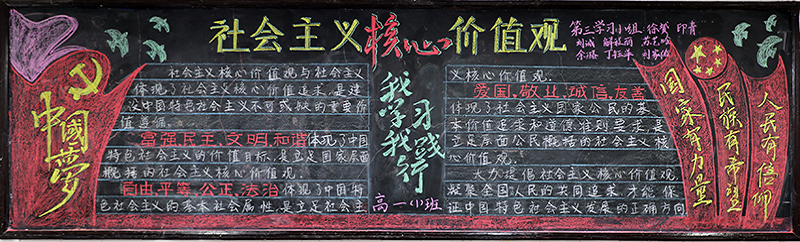 社会主义核心价值观
第三学习小组
中國夢
社会主义核心价值观与社会主义
体现了社会主义核心价值追求,是建
设中国特色社会主义不可或缺的重要价
值遵循。
富强民主,文明,和谐体现了中国
特色社会主义的价值目标,是立足国家层面
概括的社会主义核心价值观
自由,平等,公正,法治体现了中国特
色社会主义的基本社会属性,是立足社会主
我学我行
习践行
高一(1)班
义核心价值观.
爱国,敬业,诚信,友善
体现了社会主义国家公民的基
本价值追求和道德准则要求,是
立足层面公民概括的社会主义核
心价值观.
大力提倡社会主义核心价值观,
凝聚全国人民的共同追求,才能保
证中国特色社会主义发展的正确方向
国家有力量
民族有希望
人民有信仰